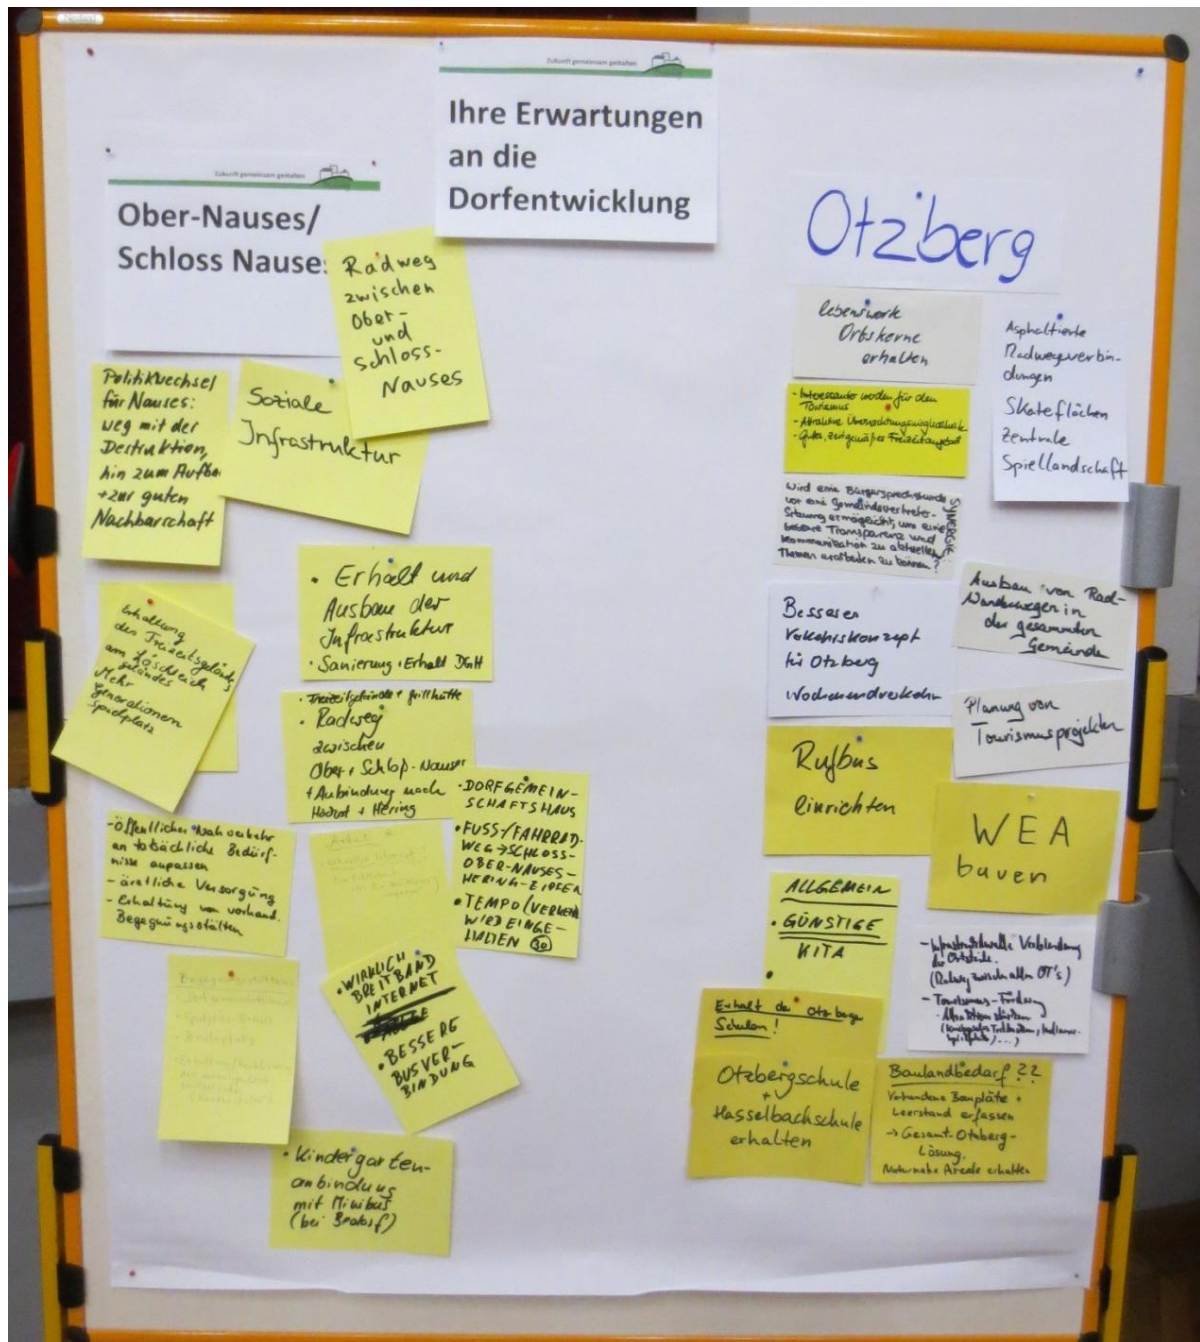 Zukunft gemeinsam gestalten
Ihre Erwartungen
an die
Dorfentwicklung
Zukunft gemeinsam gestalten
Ober-Nauses/
Schloss Nauses
Radweg
zwischen
Ober-
und
Schloss-
Nauses
Politikwechsel
für Nauses:
weg mit der
Destruktion,
hin zum Aufbau
+ zur guten
Nachbarschaft
Soziale
Infrastruktur
• Erhalt und
Ausbau der
Infrastruktur
• Sanierung + Erhalt DGH
Erhaltung
des Freizeitgeländes
am Löschteich
Mehr
generationen
Spielplatz
• Freizeitgelände + Grillhütte
• Radweg
zwischen
Ober + Schloß-Nauses
+ Anbindung nach
Hering
• DORFGEMEIN-
SCHAFTSHAUS
• FUSS/FAHRRAD-
WEG → SCHLOSS-
OBER-NAUSES-
HERING-
• TEMPO (VERKEHR)
WIRD EINGE-
HALTEN 30
- öffentlicher Nahverkehr
an tatsächliche Bedürf-
nisse anpassen
- ärztliche Versorgung
- Erhaltung von vorhand.
Begegnungsstätten
• WIRKLICH
BREITBAND
INTERNET
• BESSERE
BUSVER-
BINDUNG
• Kindergarten-
anbindung
mit Minibus
(bei Bedarf)
Otzberg
lebenswerte
Ortskerne
erhalten
Asphaltierte
Radwegverbin-
dungen
Skateflächen
Zentrale
Spiellandschaft
- Interessanter werden für den
Tourismus
- Attraktive Übernachtungsmöglichkeiten
- Gutes, zeitgemäßes Freizeitangebot
Wird eine Bürgersprechstunde
vor eine Gemeindevertreter-
Sitzung ermöglicht, um eine
bessere Transparenz und
Kommunikation zu aktuellen
Themen erarbeiten zu können?
SYNERGIE
Besseres
Verkehrskonzept
für Otzberg
Wochenendverkehr
Ausbau von Rad-
Wanderwegen in
der gesammten
Gemeinde
Planung von
Tourismusprojekten
Rufbus
einrichten
WEA
bauen
ALLGEMEIN
• GÜNSTIGE
KITA
- Infrastrukturelle Verbindung
der Ortsteile.
(Radweg zwisch allen OT's)
- Tourismus-Förderung
Erhalt der Otzberger
Schulen!
Otzbergschule
+
Hasselbachschule
erhalten
Baulandbedarf ??
Vorhandene Bauplätze +
Leerstand erfassen
→ Gesamt-Otzberg-
Lösung.
Naturnahe Areale erhalten